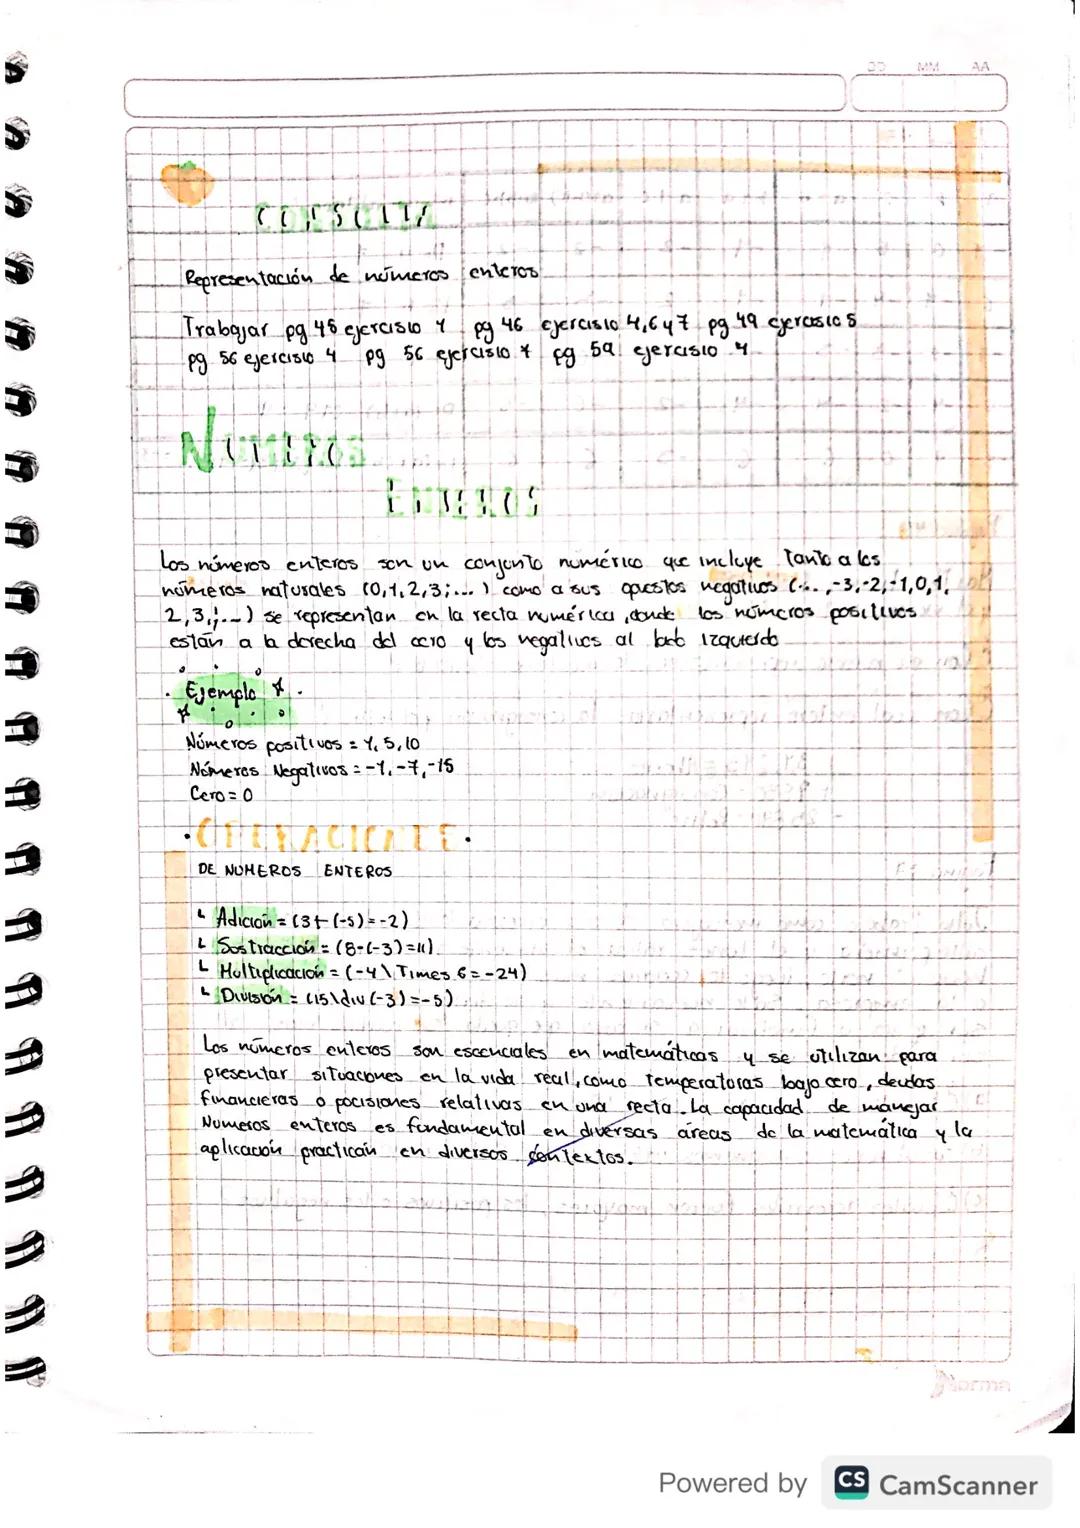 CC MM AA
CONSULTA
Representación de números enteros
Trabajar pg 45 ejercisio 4 pg 46 ejercisio 4,6 y 7 pg 49 ejercisio 5
pg 56 ejercisio 4 pg 56 ejercisio 7 pg 59 ejercisio 4
NUMEROS
ENTEROS
Los números enteros son un conjunto numérico que incluye tanto a los
números naturales (0,1,2,3;...) como a sus opuestos negativos (...,-3,-2,-1,0,1,
2,3,;...) se representan en la recta numérica, donde los números positivos
están a la derecha del cero y los negativos al lado izquierdo
Ejemplo
Números positivos = 1, 5, 10
Números Negativos = -1, -7, -15
Cero = 0
DE NUMEROS ENTEROS
Adición = (3+(-5)=-2)
Sostracción = (8-(-3)=11)
Multiplicación = (-4\Times 6=-24)
División = (15\div(-3)=-5)
Los números enteros son escenciales en matemáticas y se utilizan para
presentar situaciones en la vida real, como temperatoras bajo cero, deudas
financieras o pocisiones relativas en una recta. La capacidad de manejar
Numeros enteros es fundamental en diversas áreas de la matemática y la
aplicación practicán en diversos contextos.
Norma
Powered by CS CamScanner